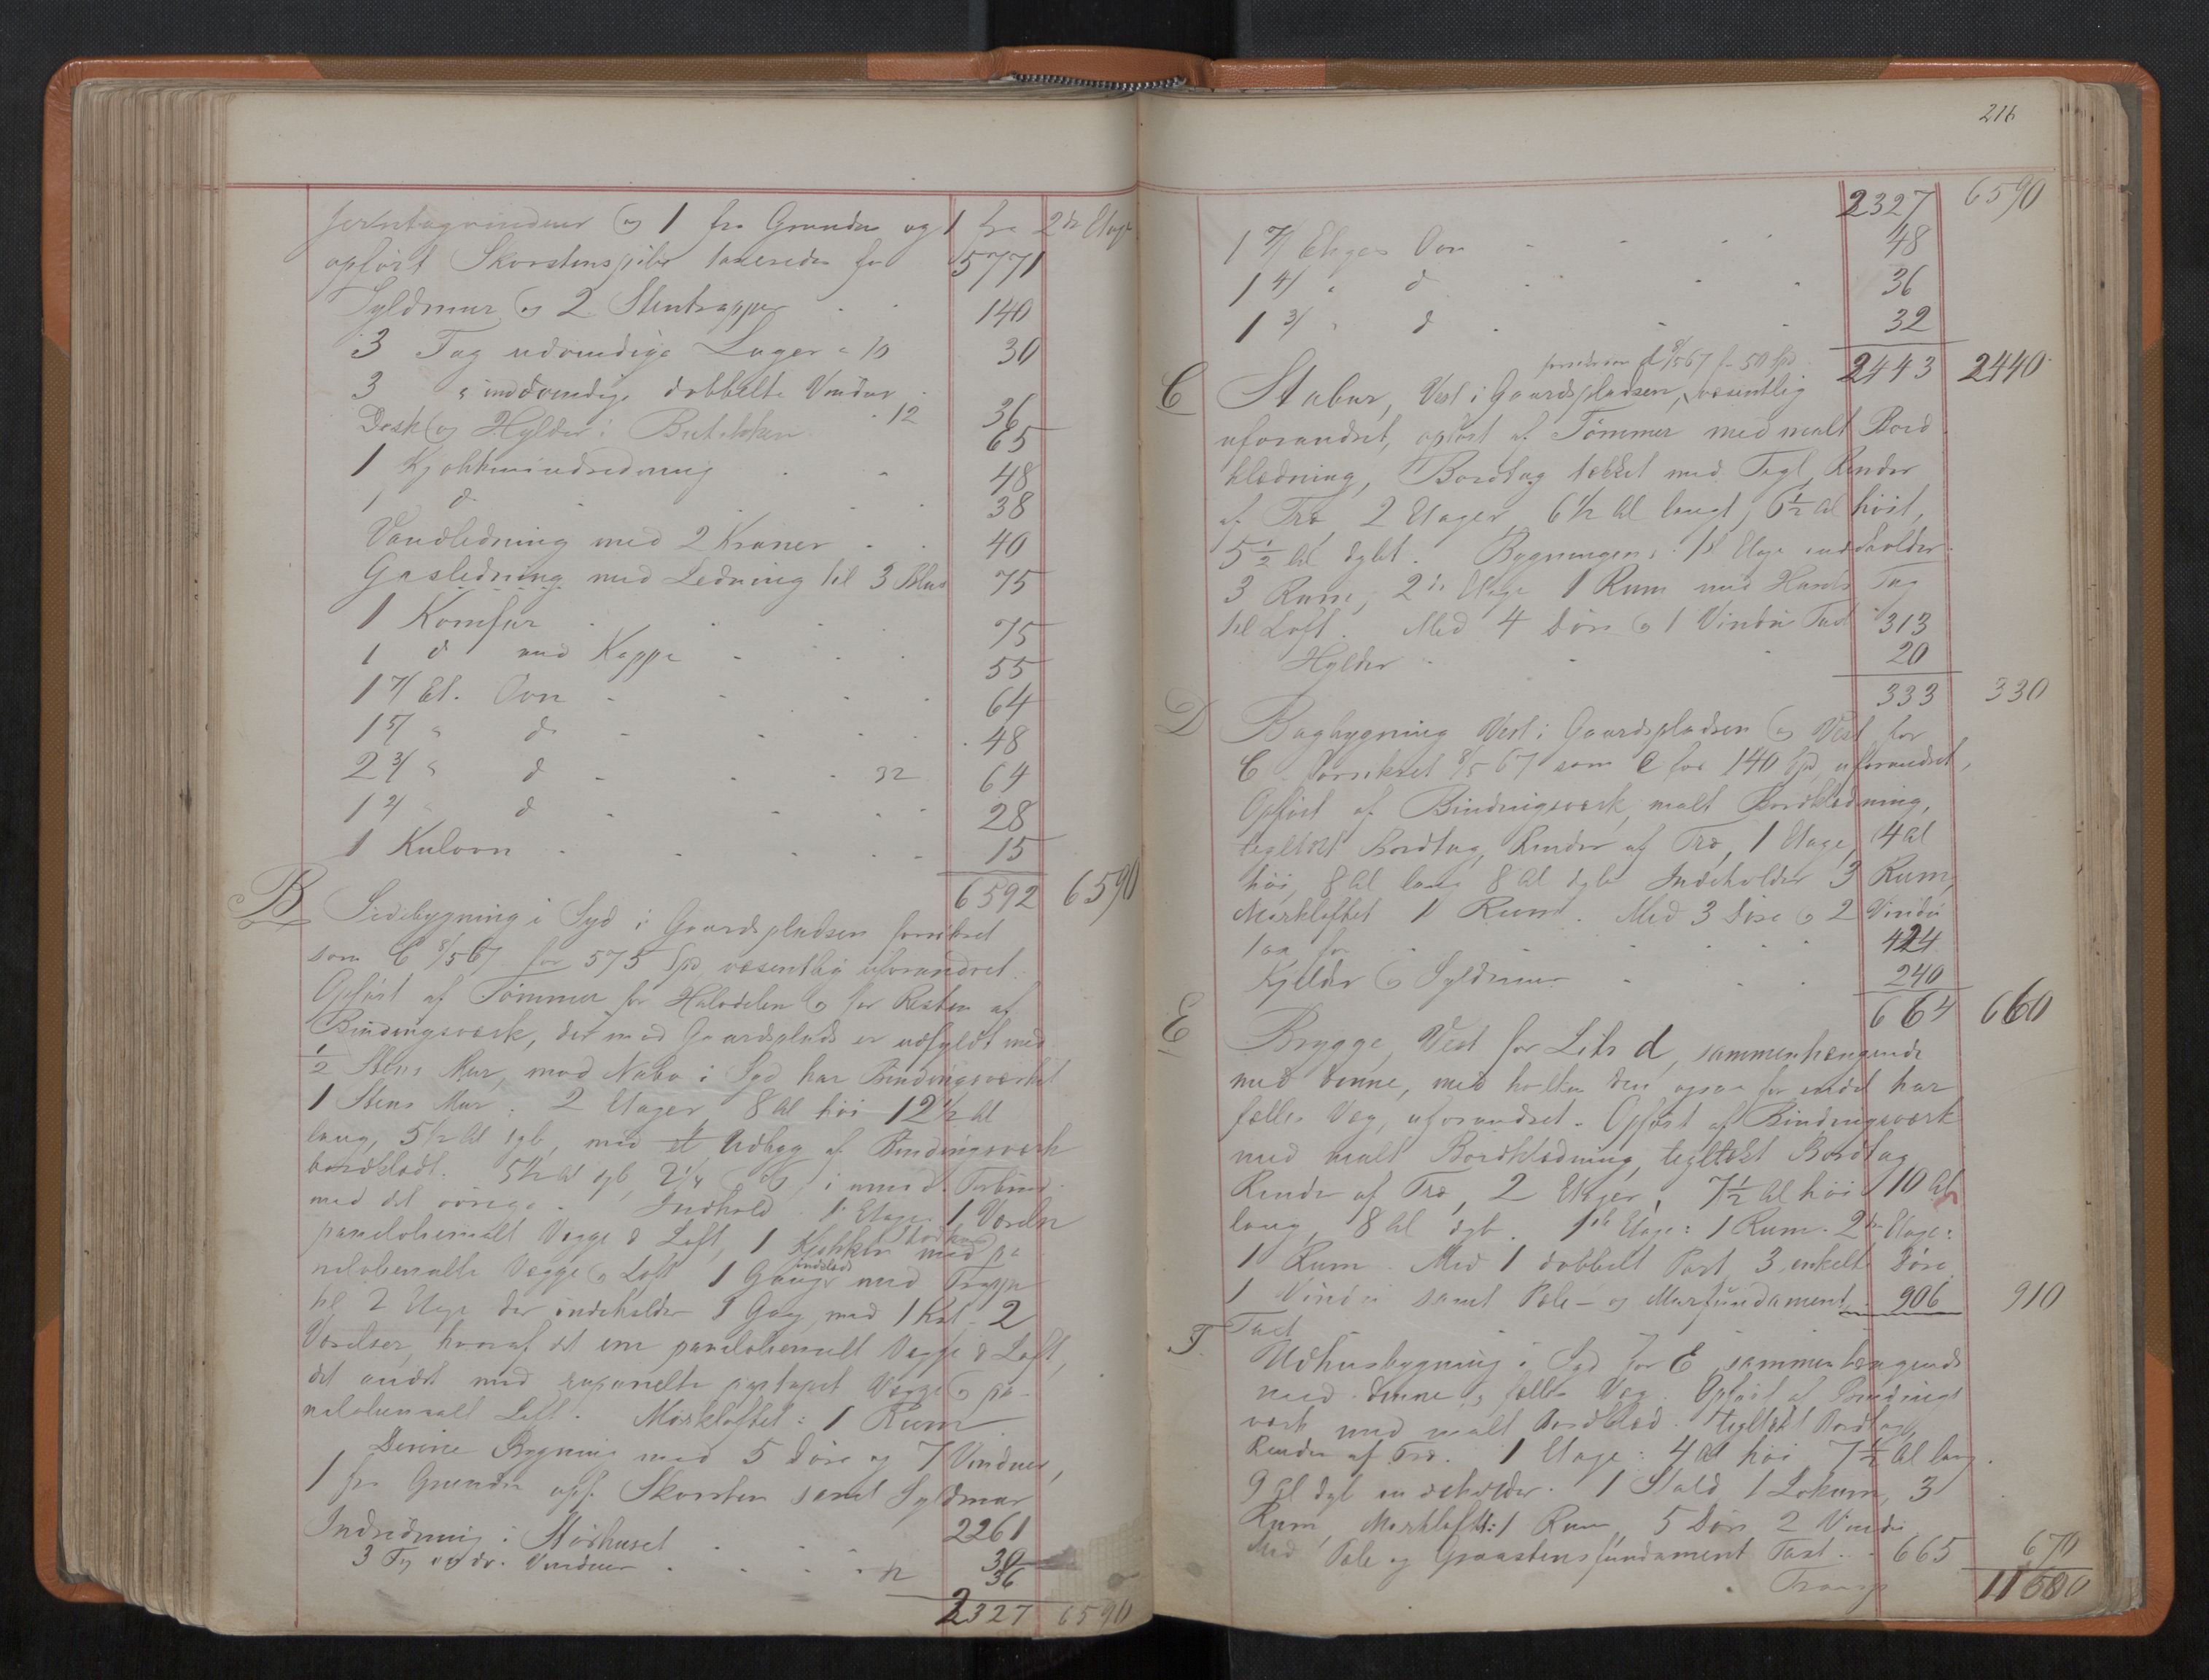 Jerntagvinduer og 1 fra Grunden og 1 fra 2den Etage
opført Skorstenspibe taxeredes for 5771
Syldmur og 2 Stentrapper 140
3 Fag udvendige Luger a 10 30
3 " indvendige dobbelte Vinduer a 12 36
Desk og Hylder i Butikken 65
1 Kjøkkenindredning 48
1 do 38
Vandledning med 2 Kraner 40
Gasledning med Ledning til 3 Blus 75
1 Komfur 75
1 do med Kappe 55
1 7/ Et. Ovn 64
1 5/ " do 48
2 3/ " do 32 64
1 2/ " do 28
1 Kulovn 15
6592 6590
B Sidebygning i Syd i Gaardspladsen forsikret
som C 8/5 67 for 575 Spd væsentlig uforandret.
Opført af Tømmer for Halvdelen og for Resten af
Bindingsværk, der mod Gaardsplads er udfyldt med
1/2 Stens Mur, mod Nabo i Syd har Bindingsværket
1 Stens Mur. 2 Etager 8 Al høi 12 1/2 Al
lang, 5 1/2 Al dyb, med et Udbyg af Bindingsværk
bordklædt. 5 1/2 Al dyb, 2 1/4 i umid. Forbind.
med det øvrige. Indhold 1e Etage 1 Værelse
panelobemalt Vægge & Loft, 1 Kjøkken med pa
nelobemalte Vægge og Loft 1 Gang med Trappe
til 2 Etage der indeholder 1 Gang med 1 Kot. 2
Værelser, hvoraf det ene panelobemalt Vægge & Loft,
det andet med rupanelte paptapet. Vægge og pa-
nelobemalt Loft. Mørkloftet: 1 Rum
Denne Bygning med 5 Døre og 7 Vinduer,
1 fra Grunden opf. Skorsten samt Syldmur 2261
Indredning i Størhuset 30
3 Fag indv. Vinduer 12 36
2327 6590
216
2327 6590
1 7/ Etages Ovn 48
1 4/ " do 36
1 3/ " do 32
2443 2440
forsikren d 8/5 67 f. 50 Spd
C Stabur, Vest i Gaardspladsen, væsentlig
uforandret, opført af Tømmer med malt Bord
klædning, Bordtag tækket med Tegl, Render
af Træ 2 Etager, 6 1/2 Al langt, 6 1/2 Al høit,
5 1/2 Al dybt. Bygningens 1e Etage indeholder
3 Rum, 2de Etage 1 Rum med Tag
til Loft. Med 4 Døre og 1 Vindu Taxt 313
Hylder 20
333 330
D Bagbygning Vest i Gaardspladsen og Vest for
C forsikret 8/5 67 som E for 140 Spd, uforandret,
Opført af Bindingsværk, malt Bordklædning,
tegltækt Bordtag, Render af Træ, 1 Etage 4 Al
høi, 8 Al lang 8 Al dyb Indeholder 3 Rum,
Mørkloftet 1 Rum. Med 3 Døre og 2 Vindu
tax for 424
Kjelder og Syldmur 240
664 660
E Brygge, Vest for Litr d, sammenhængende
med denne, med hvilken den ogsaa for endel har
fælles Væg, uforandret. Opført af Bindingsværk
med malt Bordklædning tegltækt Bordtag
Render af Træ, 2 Etager, 7 1/2 Al høi 10 Al
lang, 8 Al dyb. 1ste Etage: 1 Rum. 2den Etage:
1 Rum. Med 1 dobbelt Port 3 enkelte Døre
1 Vindu samt Pæle- og Murfundament 906 910
Taxt
F Udhusbygning i Syd for E sammenhængende
med denne og fælles Væg. Opført af Bindings
værk med malt Bordklæd. tegltækt Bordtag,
Render af Træ. 1 Etage: 4 Al høi 7 1/2 Al lang.
9 Al dyb indeholder. 1 Stald 1 Lokum, 3
Rum, Mørkloftet: 1 Rum, 5 Døre 2 Vindu
Med Pæle og Graastensfundament Taxt 665 670
Transp 11580